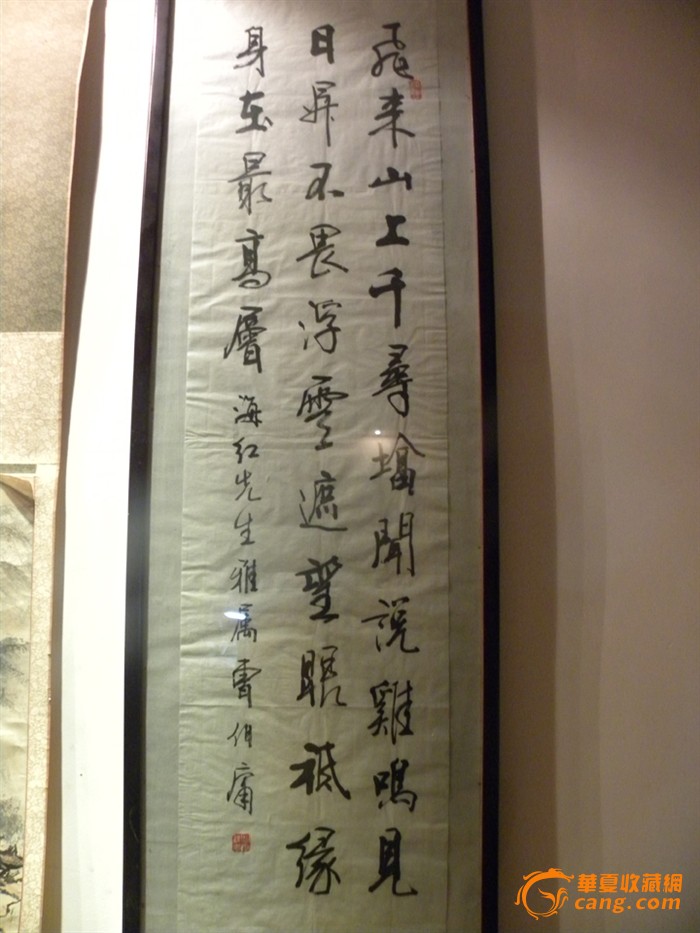 飛来山上千尋塔聞説雞鳴見
日昇不畏浮雲遮望眼祗緣
身在最高層
海红先生雅属曹伯庸
華夏收藏網
cang.com